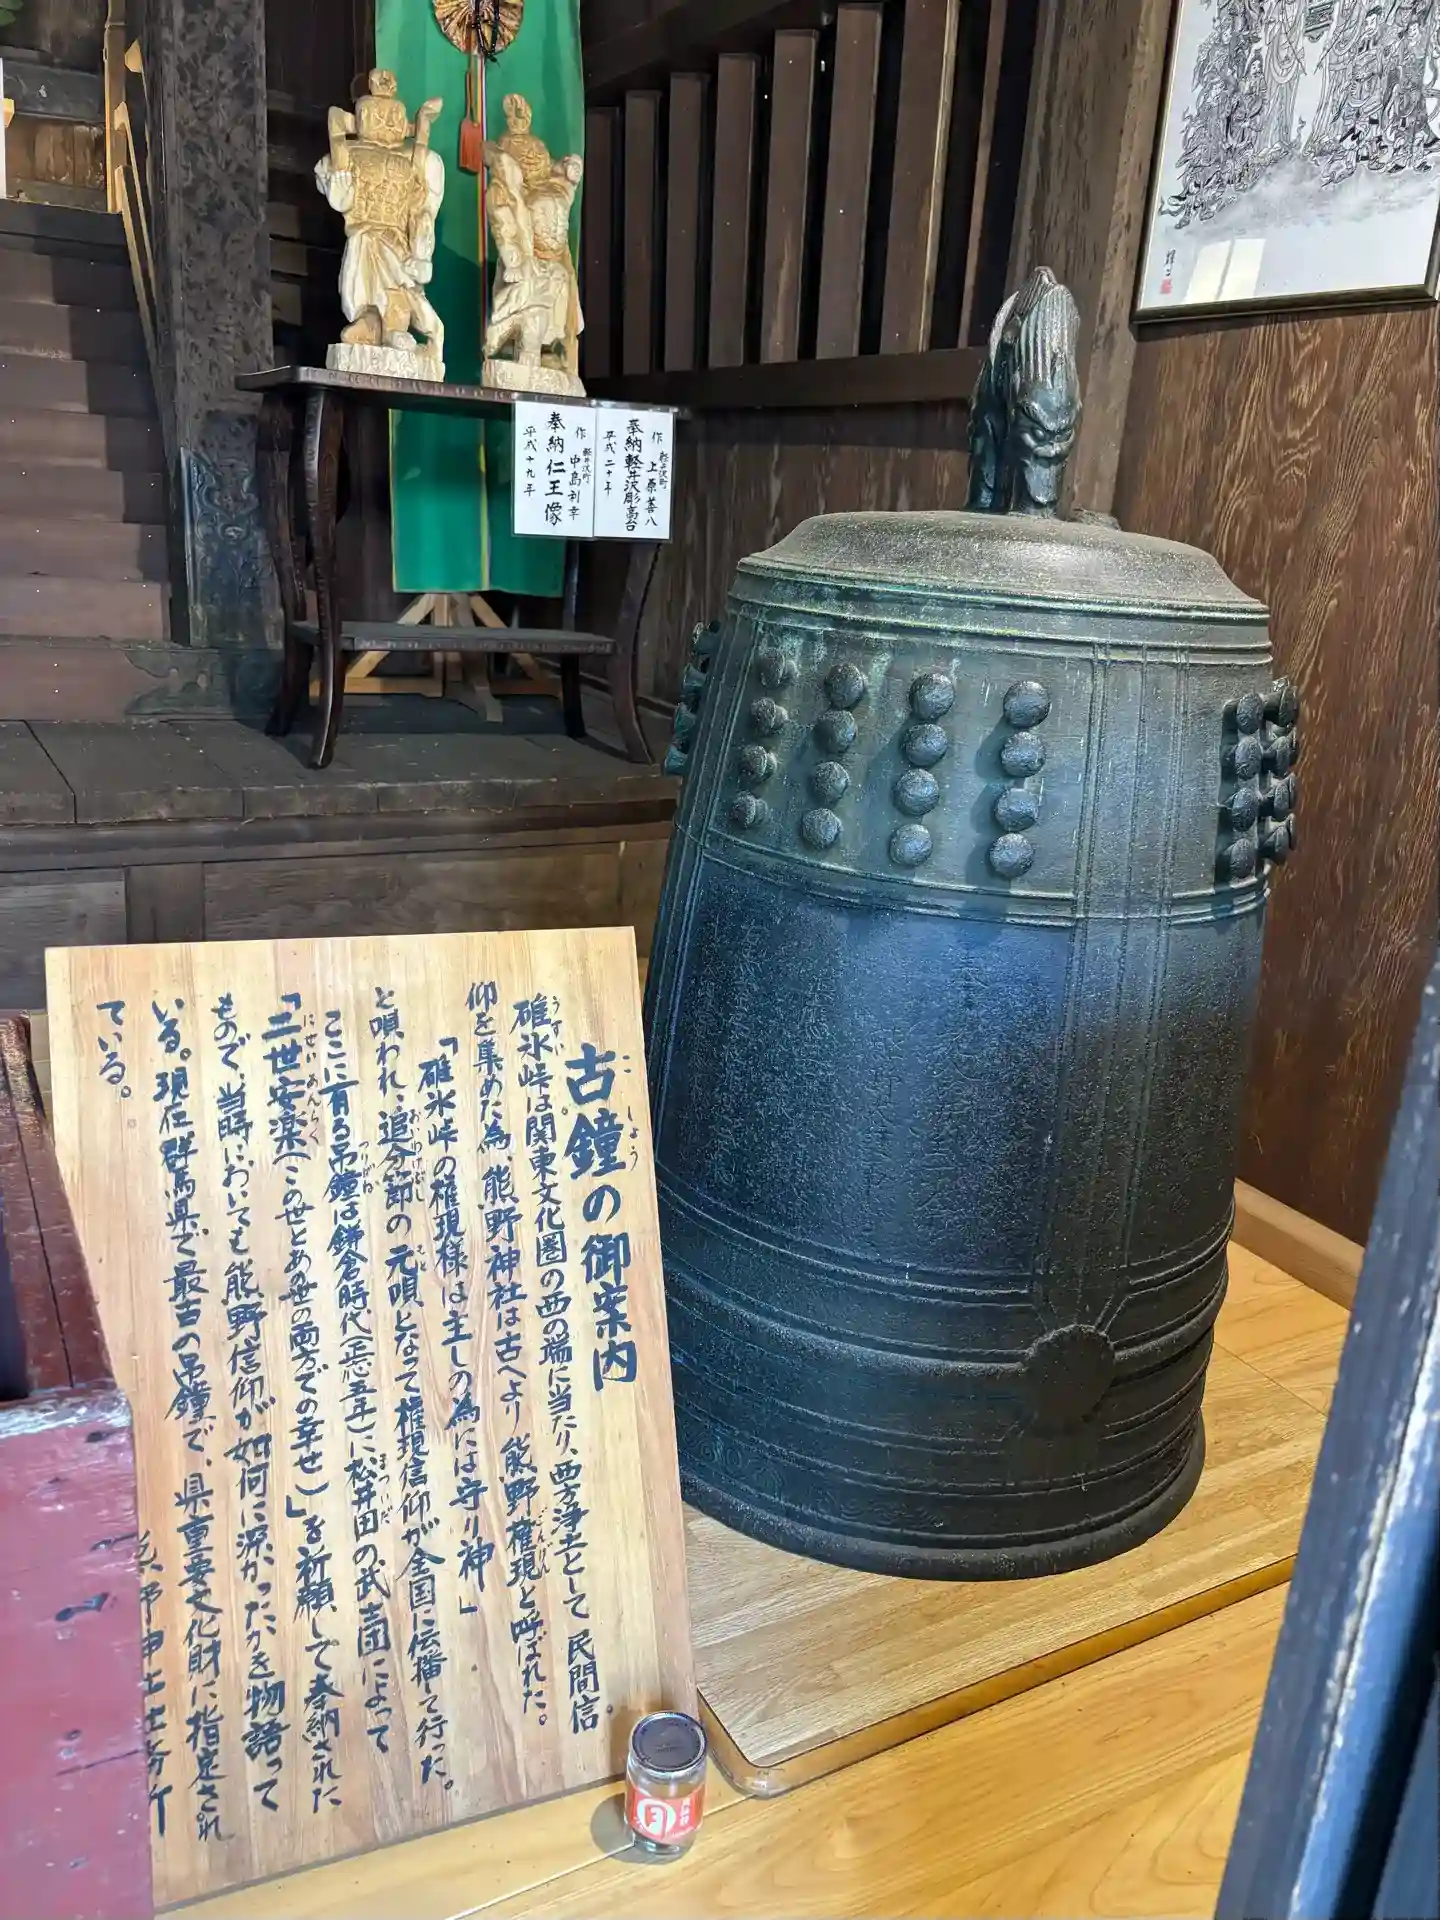 古鐘の御案内
こしょう
碓氷峠は関東文化圏の西の端に当たり、西方浄土として民間信
うすい
仰を集めた為、熊野神社は古へより熊野権現と呼ばれた。
ごんげん
「碓氷峠の権現様は主しの為には守り神」
と唄われ、追分節の元唄となって権現信仰が全国に伝播して行った。
おいわけぶし
もと
ここに有る吊鐘は鎌倉時代(正応五年)に松井田の武士団によって
つりがね
まついだ
「二世安楽(この世とあの世の両方での幸せ)」を祈願して奉納された
にせいあんらく
もので、当時においても熊野信仰が如何に深かったかを物語って
いる。現在群馬県で最古の吊鐘で、県重要文化財に指定され
ている。
軽井沢町
作 上原善八
奉納軽井沢彫高台
平成二十年
軽井沢町
作 中島利幸
奉納仁王像
平成十九年